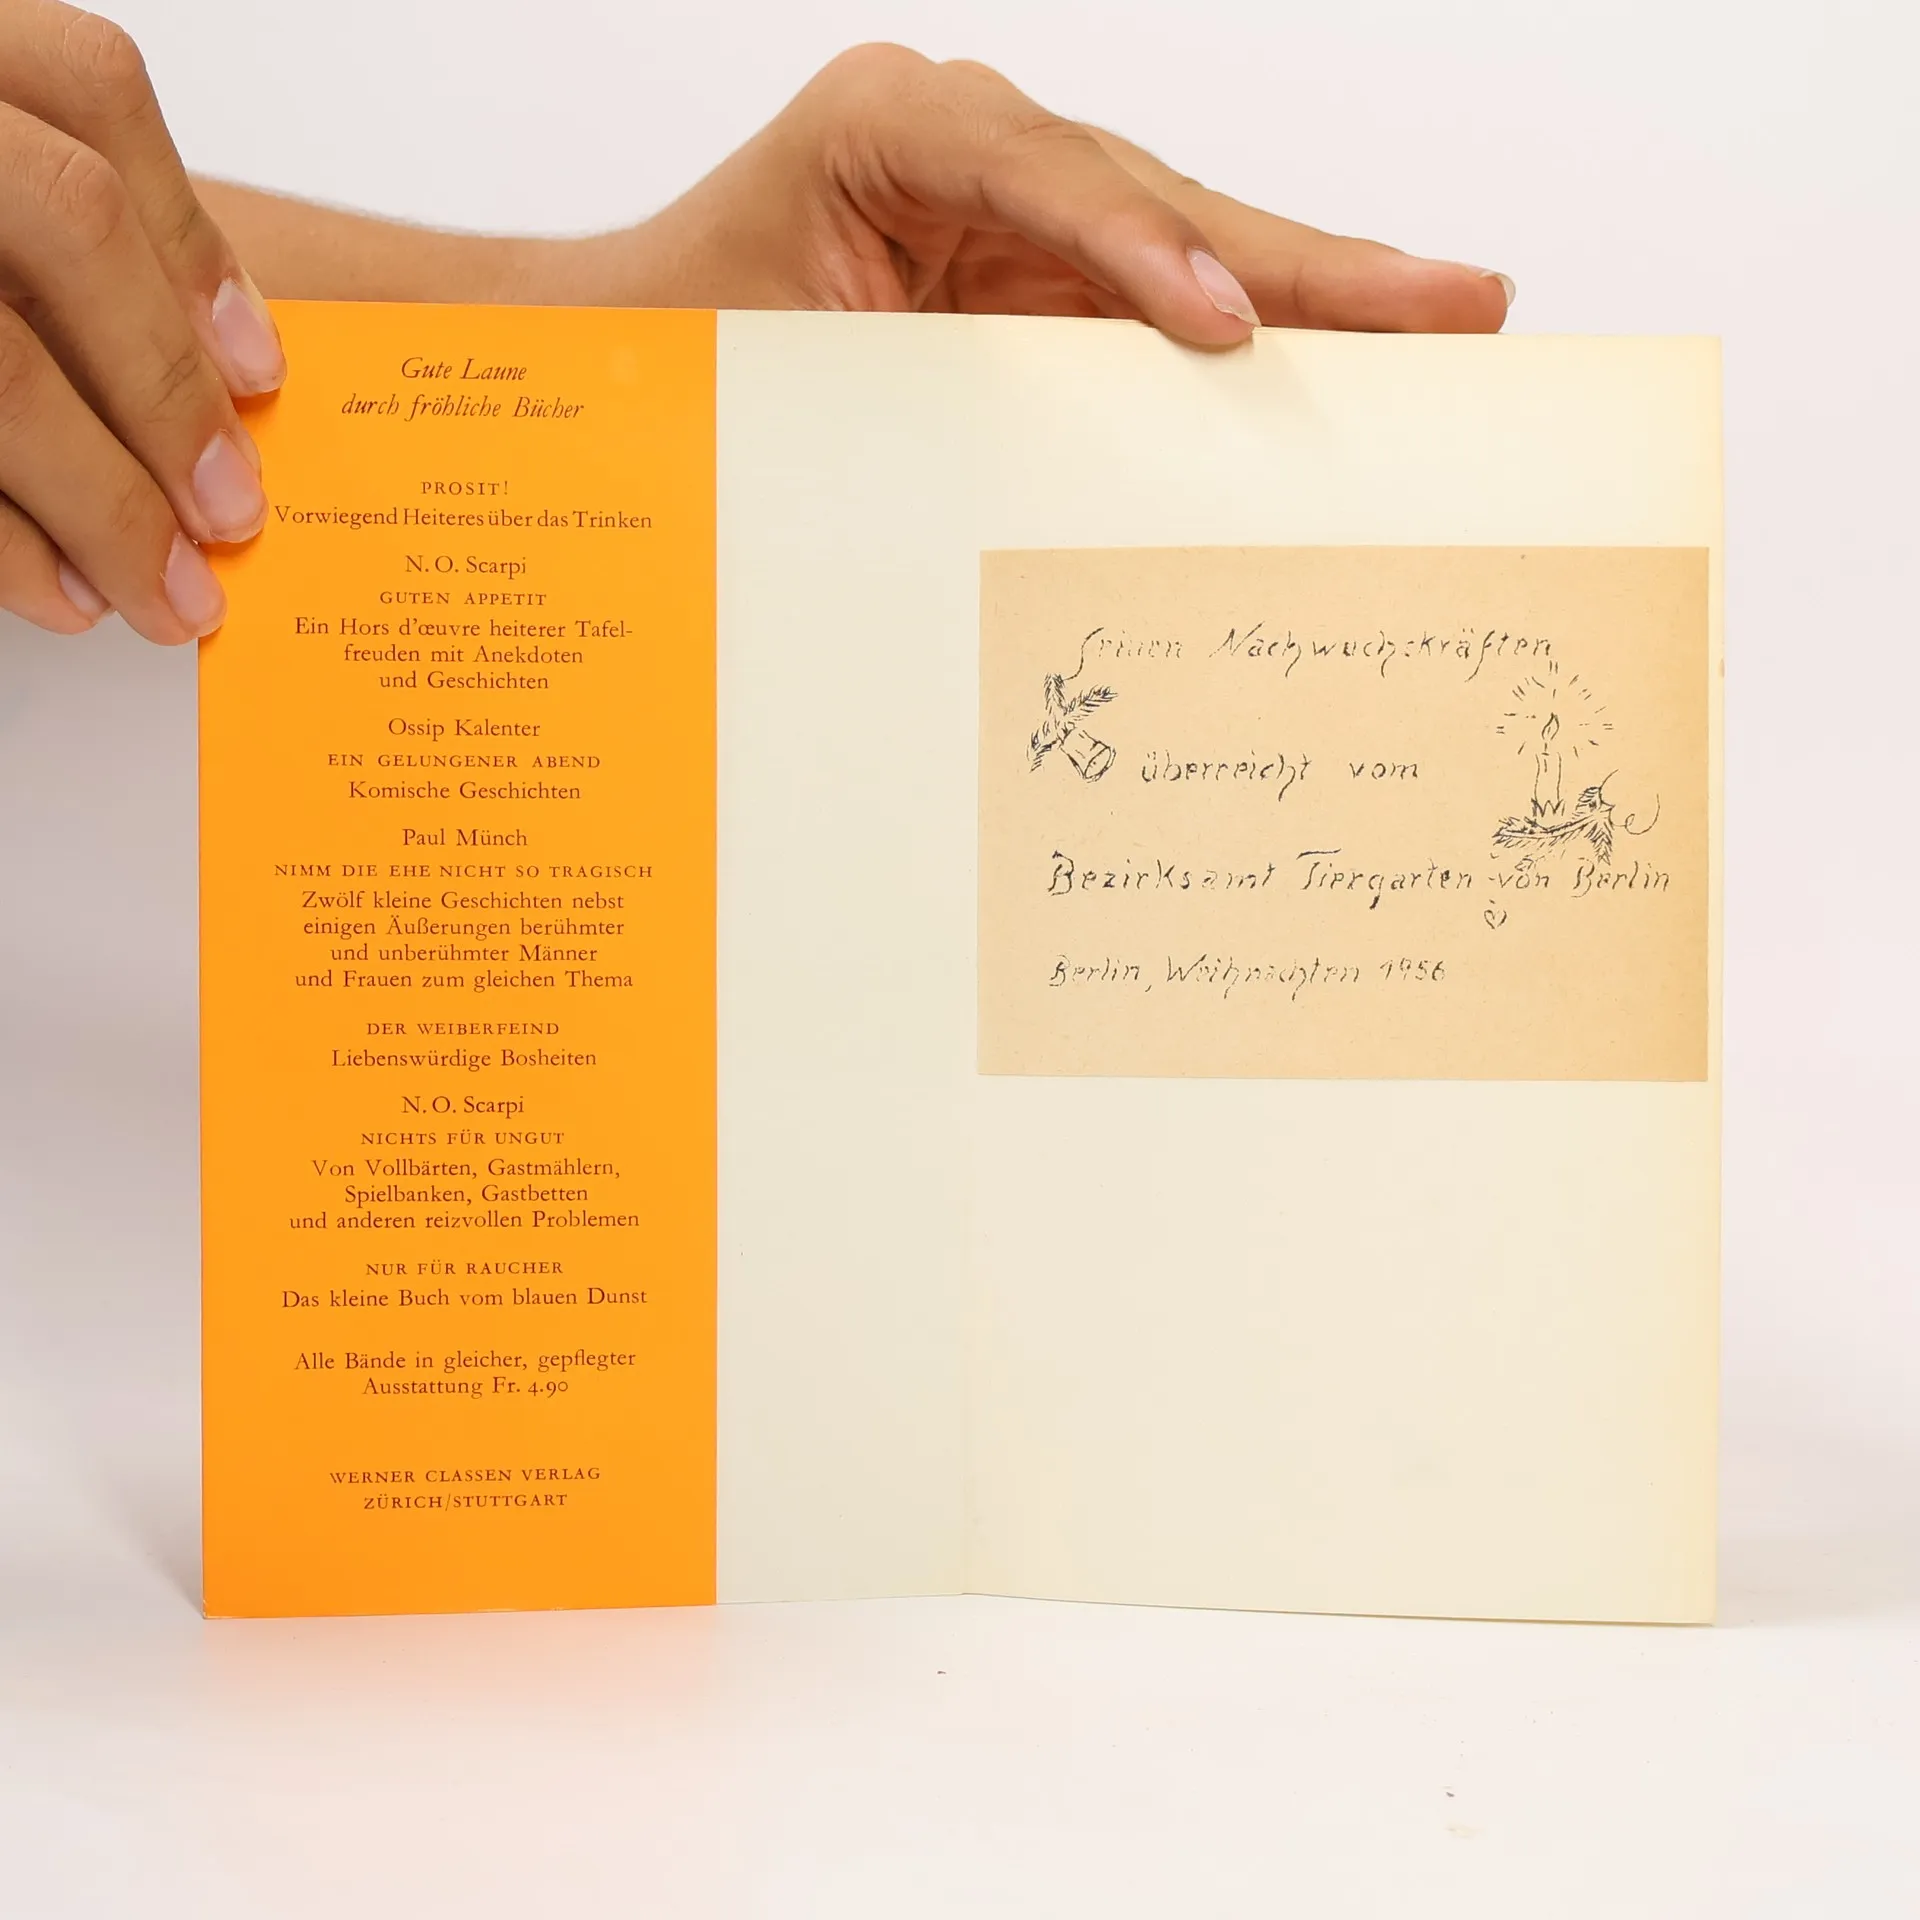 Gute Laune
durch fröhliche Bücher
PROSIT!
Vorwiegend Heiteres über das Trinken
N. O. Scarpi
GUTEN APPETIT
Ein Hors d'œuvre heiterer Tafel-
freuden mit Anekdoten
und Geschichten
Ossip Kalenter
EIN GELUNGENER ABEND
Komische Geschichten
Paul Münch
NIMM DIE EHE NICHT SO TRAGISCH
Zwölf kleine Geschichten nebst
einigen Äußerungen berühmter
und unberühmter Männer
und Frauen zum gleichen Thema
DER WEIBERFEIND
Liebenswürdige Bosheiten
N. O. Scarpi
NICHTS FÜR UNGUT
Von Vollbärten, Gastmählern,
Spielbanken, Gastbetten
und anderen reizvollen Problemen
NUR FÜR RAUCHER
Das kleine Buch vom blauen Dunst
Alle Bände in gleicher, gepflegter
Ausstattung Fr. 4.90
WERNER CLASSEN VERLAG
ZÜRICH/STUTTGART
Seinen Nachwuchskräften
überreicht vom
Bezirksamt Tiergarten von Berlin
Berlin, Weihnachten 1956